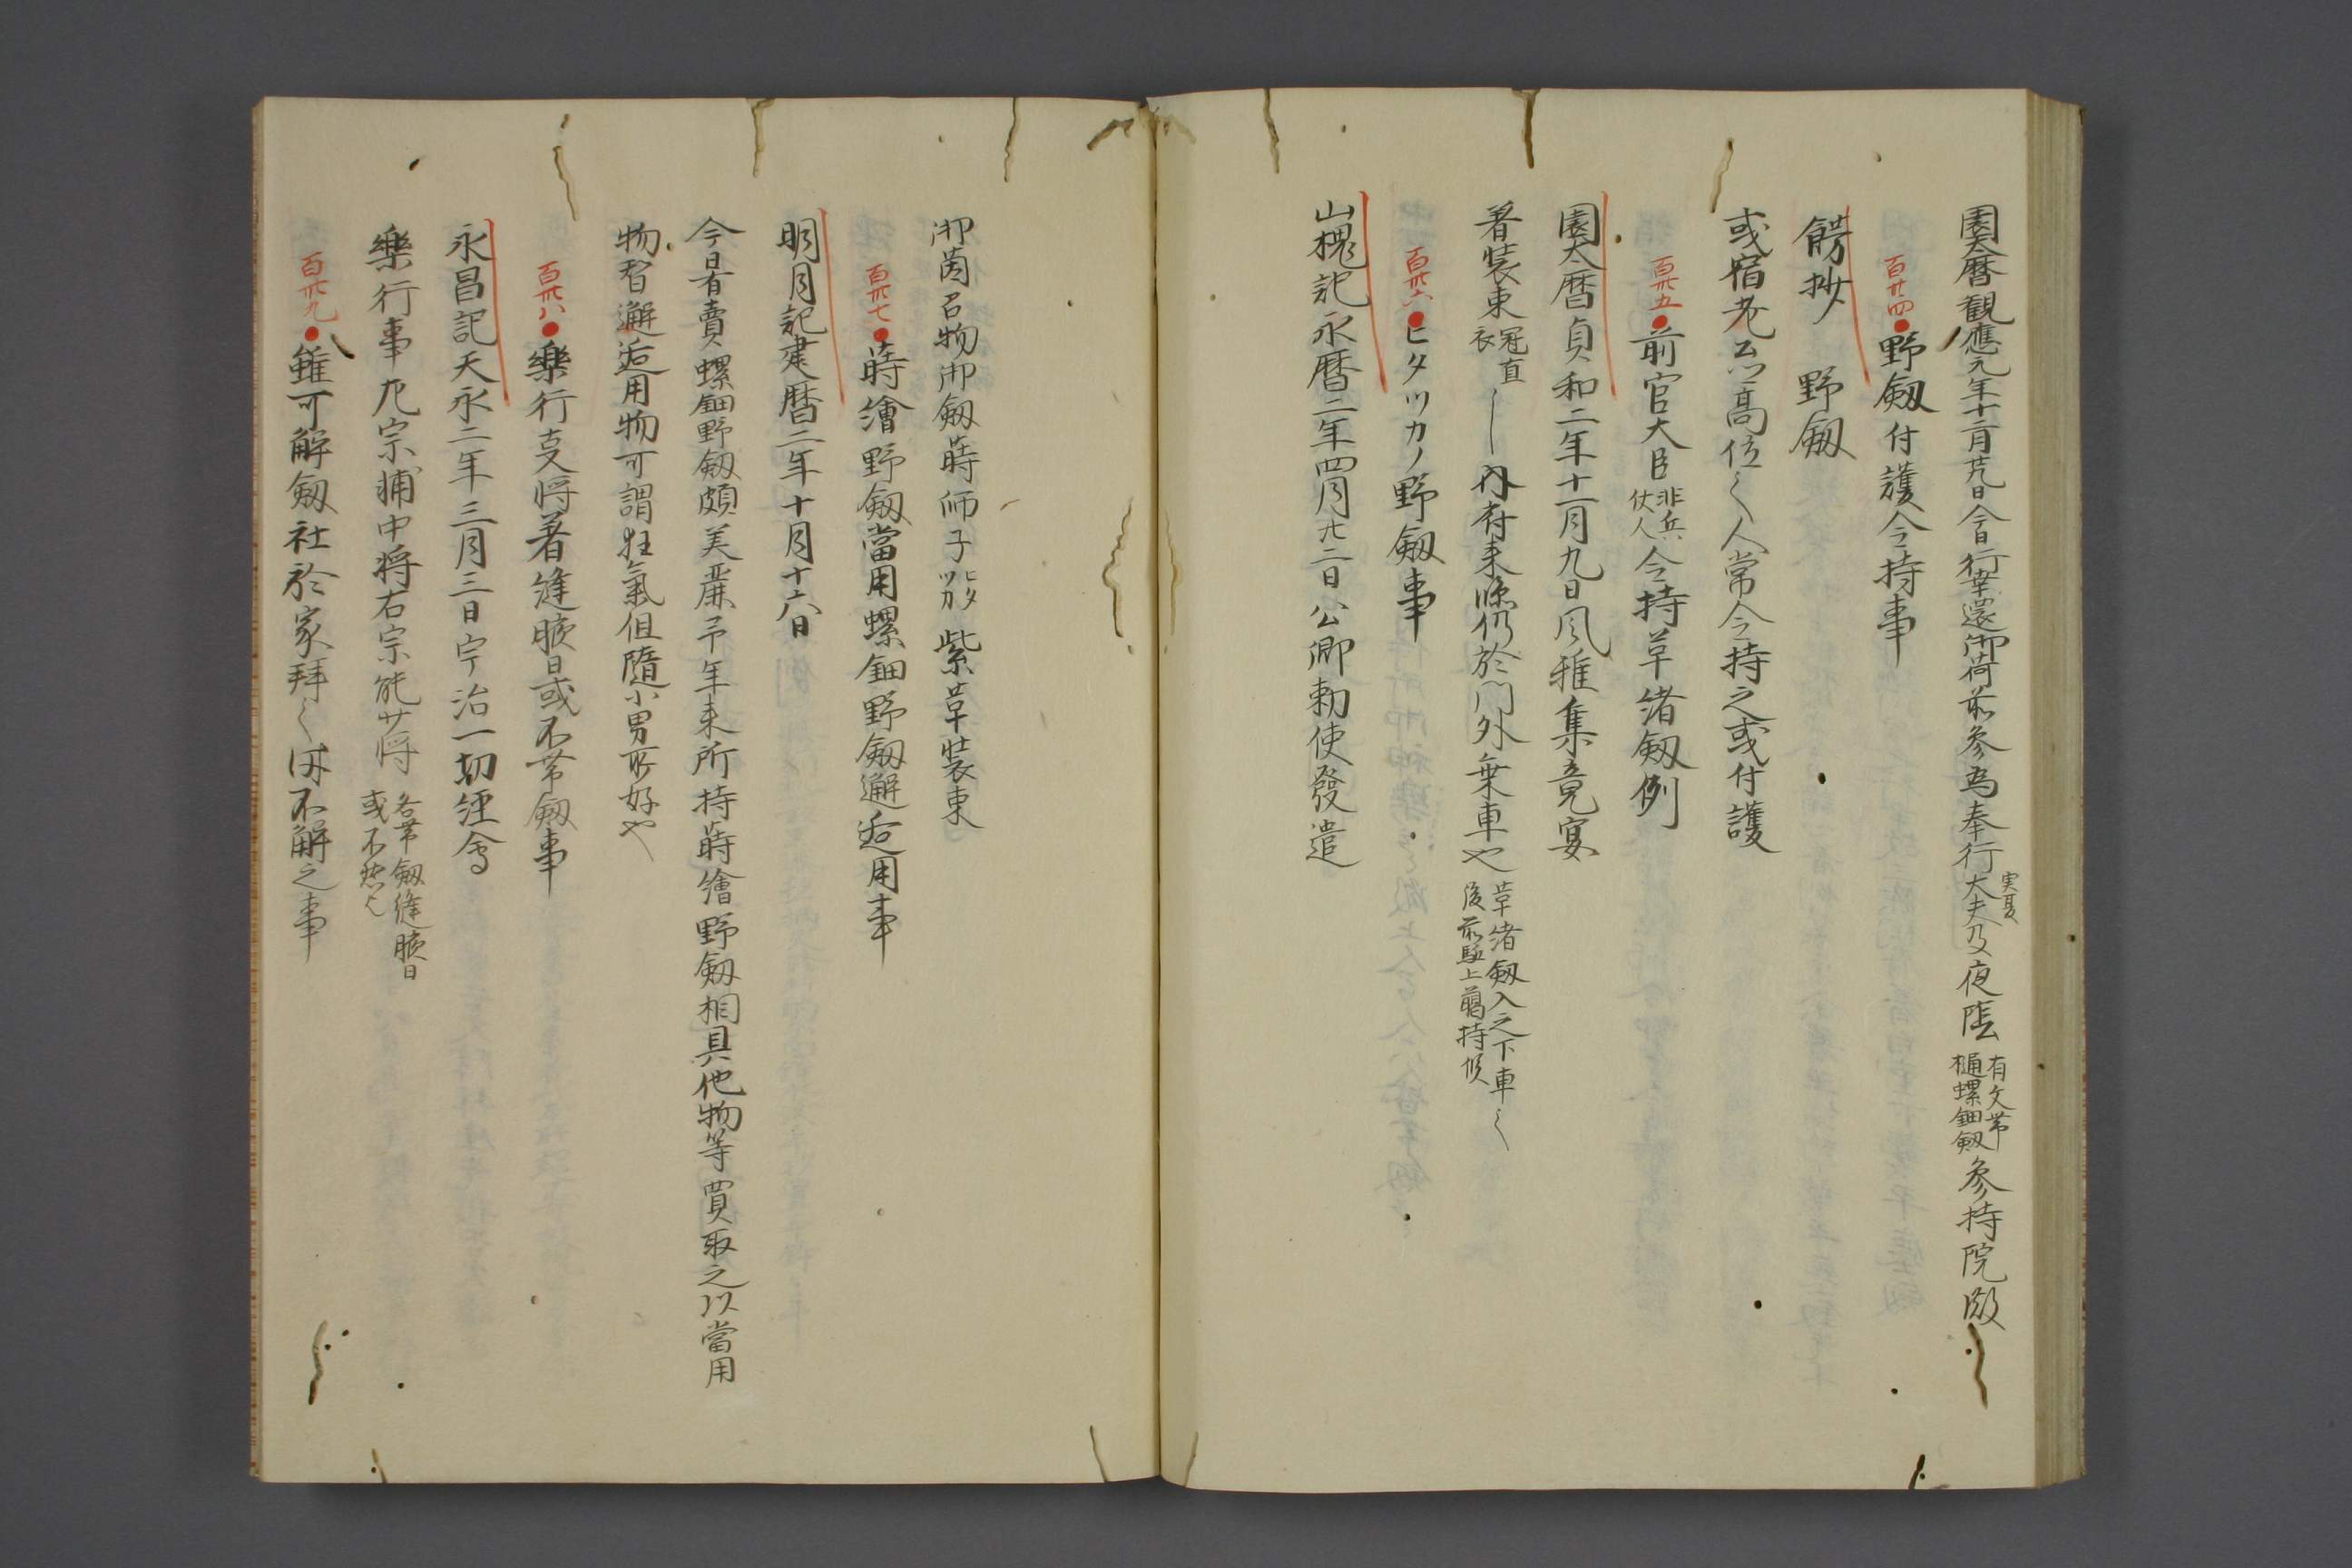 園太暦観應元年十二月廿九日今日行幸還御荷前参為奉行大夫実夏及夜陰有文帯樋螺鈿釼参持院殿
百卅四●野釼付護令持事
餝抄　野釼
或宿老公高位之人常令持之或付護
百卅五●前官大臣非兵仗人令持草緒釼例
園太暦貞和二年十一月九日風雅集竟宴
著装束冠直衣丹有来 仍於門外乗車也草緒釼入之下車之後前駈上臈持候
百卅六●ヒタツカノ野釼事
山槐記永暦二年四月廿二日公卿勅使發遣
御茵召物御釼蒔師子ヒタツカ紫草装束
百卅七●蒔繪野釼當用螺鈿野釼邂逅用事
明月記建暦二年十月十六日
今日者賣螺鈿野釼頗美麗予年来所持蒔繪野釼相具他物等買取之以當用
物智邂逅用物可謂狂氣但隨小男所好也
百卅八●樂行支将著縫腋日或不帯釼事
永昌記天永二年三月三日宇治一切經會
樂行事左宗輔中将右宗能少将各帯釼縫腋日或不然之
百卅九●雖可解釼社於家拜之時不解之事